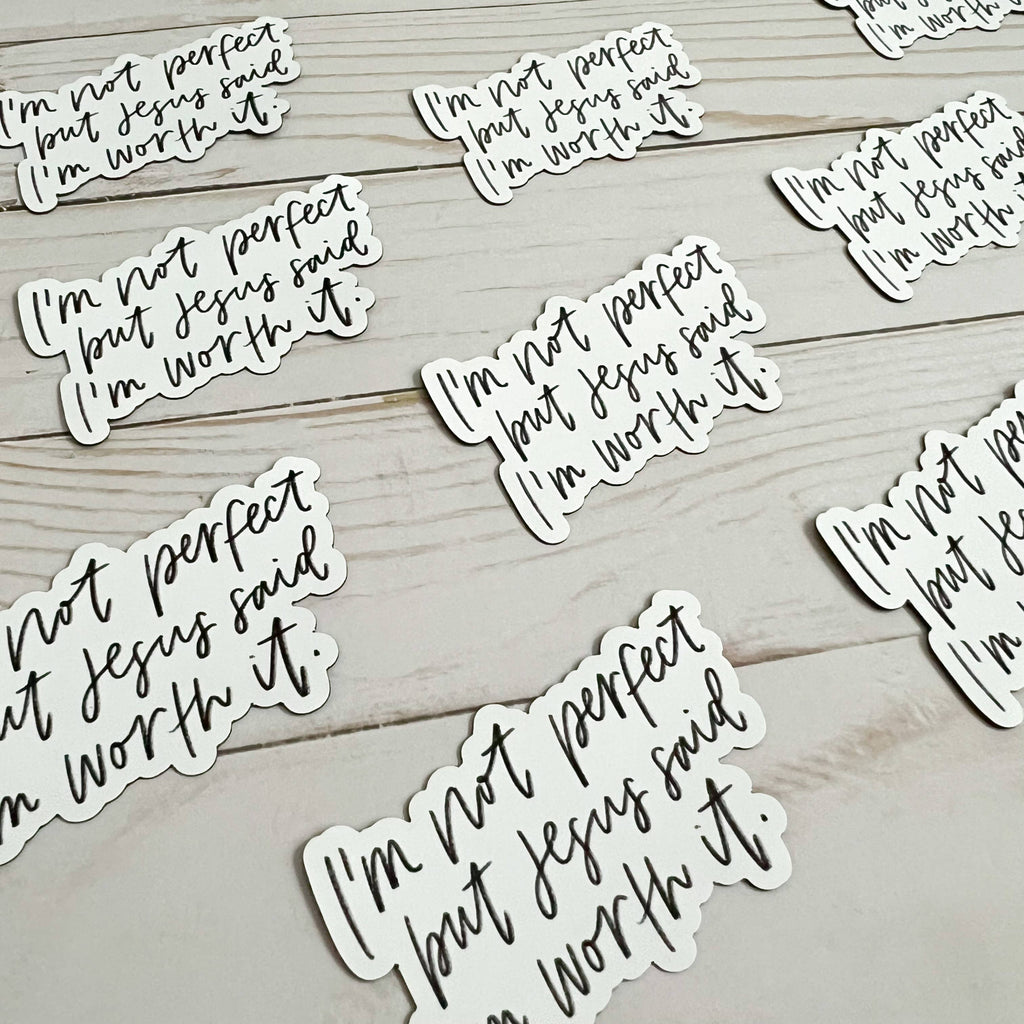 I'm not perfect
but Jesus said
I'm worth it.
I'm not perfect
but Jesus said
I'm worth it.
but Jesus said
I'm worth it.
I'm not perfect
but Jesus said
I'm worth it
I'm not perfect
but Jesus said
I'm worth it.
I'm not perfect
but Jesus said
I'm worth it.
I'm not
but
I'm
not perfect
Jesus said
worth it.
I'm not perfect
but Jesus said
worth it.